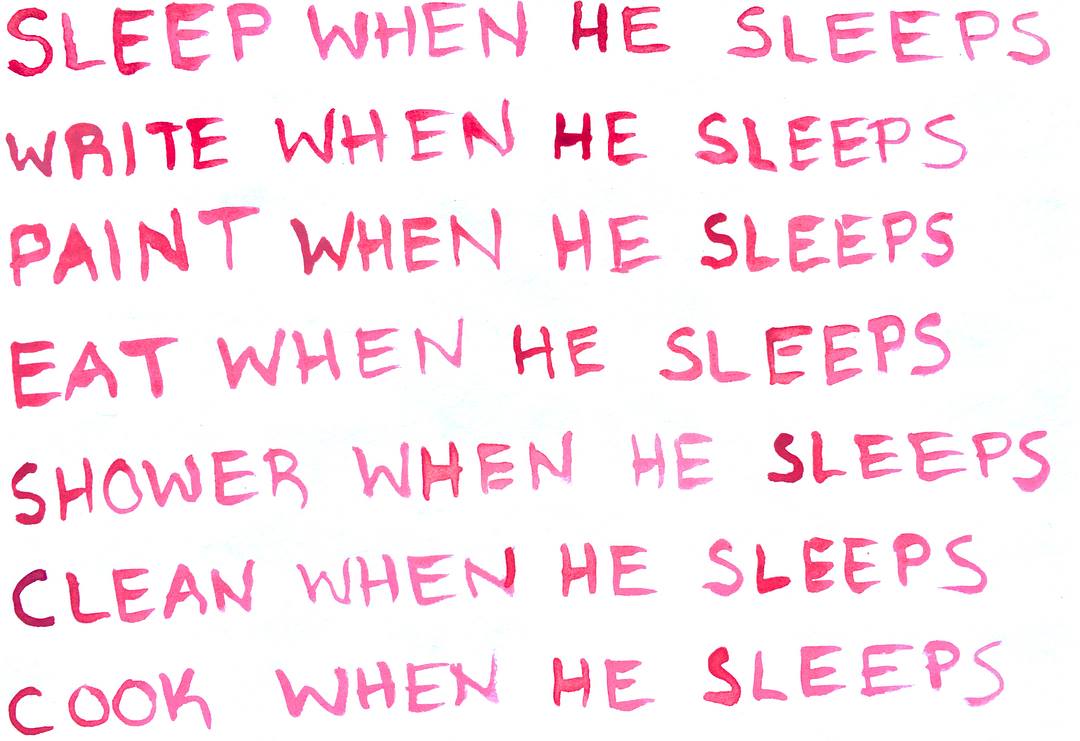 SLEEP WHEN HE SLEEPS
WRITE WHEN HE SLEEPS
PAINT WHEN HE SLEEPS
EAT WHEN HE SLEEPS
SHOWER WHEN HE SLEEPS
CLEAN WHEN HE SLEEPS
COOK WHEN HE SLEEPS